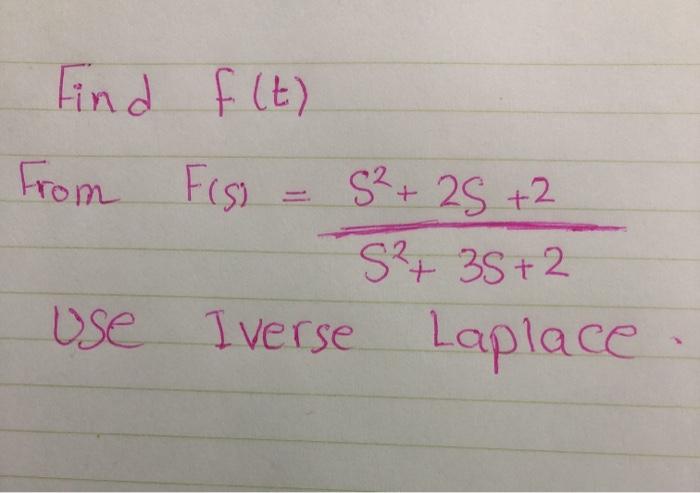 Find f(t)
From F(s) = S²+ 2S +2
S²+ 3S+2
Use Iverse Laplace.